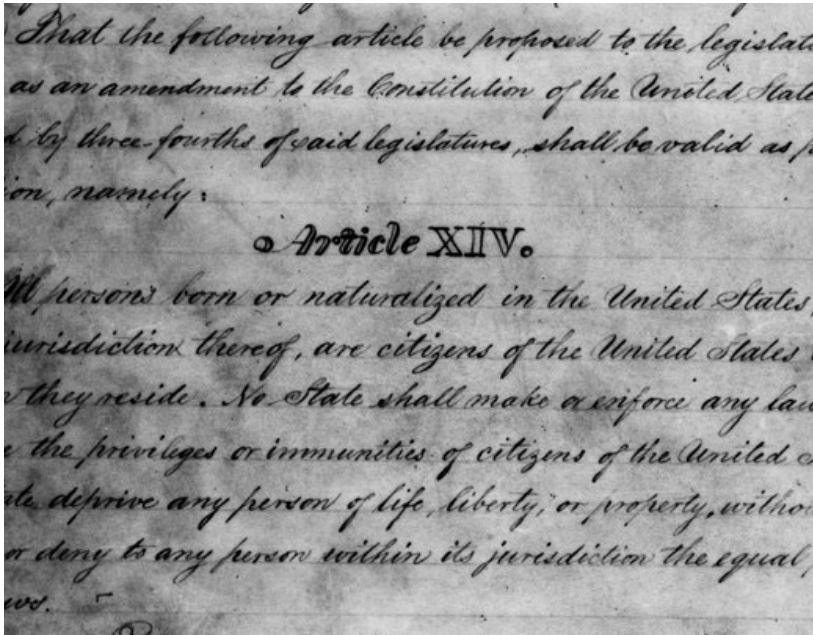 That the following article be proposed to the legislatu
as an amendment to the Constitution of the United State
d by three-fourths of said legislatures, shall be valid as p
ion, namely:
Article XIV.
All persons born or naturalized in the United States,
jurisdiction thereof, are citizens of the United States
they reside. No State shall make or enforce any law
e the privileges or immunities of citizens of the United S
ate deprive any person of life, liberty, or property, withou
or deny to any person within its jurisdiction the equal p
ws.